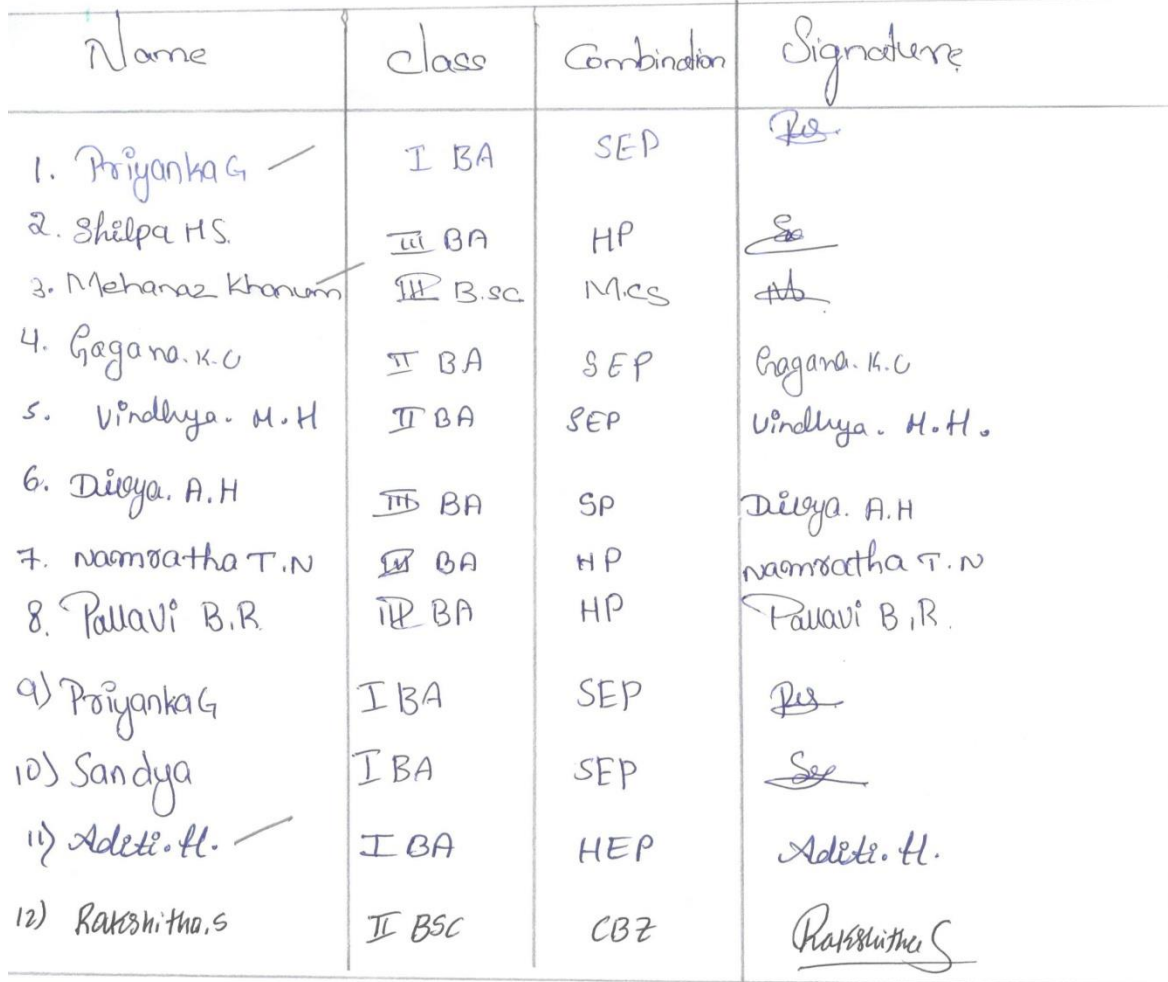 Name Class Combination Signature
1. Priyanka G I BA SEP
2. Shilpa H S. III BA HP
3. Mehanaz Khanum III B.sc M.Cs
4. Gagana. K.C II BA SEP Gagana. K.C
5. Vindhya. M.H II BA SEP Vindhya. M.H.
6. Divya. A.H III BA SP Divya. A.H
7. Namratha T.N III BA HP Namratha T.N
8. Pallavi B.R. III BA HP Pallavi B.R.
9) Priyanka G I BA SEP
10) Sandya I BA SEP
11) Aditi. H. I BA HEP Aditi. H.
12) Rakshitha.S II BSC CBZ Rakshitha S